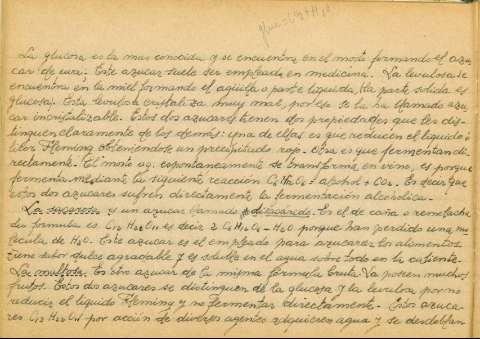 La glucosa es la mas conocida y se encuentra en el mosto formando el azu
car de uva; Este azucar suele ser empleada en medicina. La levulosa se
encuentra en la miel formando el aguilla o parte liquida, (la parte solida es
glucosa). Esta levulosa cristaliza muy mal, por eso se la ha llamado azu
car incristalizable. Estos dos azucares tienen dos propiedades que les dis-
tinguen claramente de los demás: una de ellas es que reducen el liquido
Fleming obteniendose un precipitado rojo. Otra es que fermentan di-
rectamente. El mosto ag. espontaneamente se transforma en vino, es porque
fermenta mediante la siguiente reacción C6H12O6 = alcohol + CO2. Es decir que
estos dos azucares sufren directamente la fermentación alcoholica.
La es un azucar llamado Es el de caña o remolacha
su formula es C12H22O11 es decir 2 C6H12O6 - H2O porque han perdido una mo
lecula de H2O. Este azucar es el empleado para azucarar los alimentos
tiene sabor dulce agradable y es soluble en el agua sobre todo en la caliente.
La maltosa. Es otro azucar de la misma formula bruta. La poseen muchos
frutos. Estos dos azucares se distinguen de la glucosa y la levulosa por no
reducir el liquido Fleming y no fermentar directamente. Estos azuca-
res C12H22O11 por acción de diversos agentes adquieren agua y se desdoblan